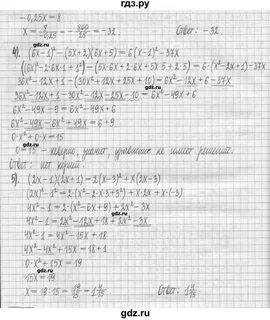 -0,25x=8
x= 8/-0,25 = -800/25 = -32 Ответ: -32
4). (6x-1)²-(5x+2)(6x+5)=6(x-1)²-37x
((6x)²-2·6x·1+1²)-(5x·6x+2·6x+5x·5+2·5)=6·(x²-2x+1)-37x
36x²-12x+1-(30x²+12x+25x+10)=6x²-12x+6-37x
36x²-12x+1-30x²-12x-25x-10=6x²-49x+6
6x²-49x-9=6x²-49x+6
6x²-49x-6x²+49x=6+9
0·x²+0·x=15
0=15 - неверно, значит, уравнение не имеет решений.
Ответ: нет корней.
5). (2x-1)(2x+1)=2(x-3)²+x(2x-3)
(2x)²-1²=2·(x²-2·x·3+3²)+x·2x+x·(-3)
4x²-1=2·(x²-6x+9)+2x²-3x
4x²-1=2x²-12x+18+2x²-3x
4x²-1=4x²-15x+18
4x²-4x²+15x=18+1
0·x²+15x=19
15x=19
x=19:15= 19/15 =1 4/15 Ответ: 1 4/15